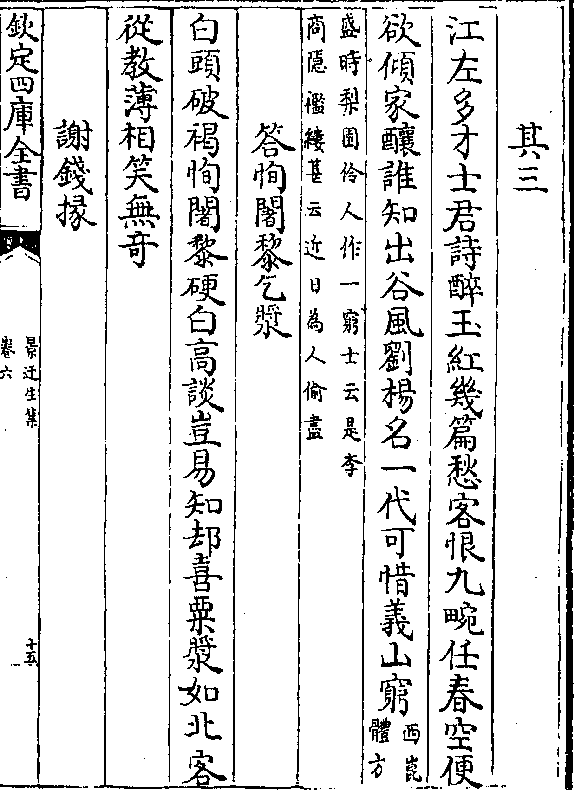 其三
江左多才士君詩醉玉紅幾篇愁客恨九畹任春空便
欲傾家釀誰知出谷風劉楊名一代可惜義山窮西崑
體方
盛時梨園伶人作一窮士云是李
商隱襤縷甚云近日為人偷盡
答恂闍黎乞漿
白頭破褐恂闍黎硬白高談豈易知却喜粟漿如北客
從教薄相笑無奇
謝錢掾
欽定四庫全書
景迂生集
卷六
十五